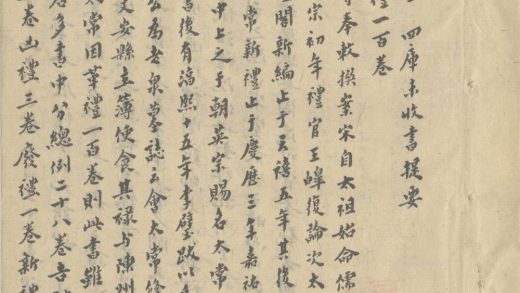 四庫未收書提要
一百卷
奉敕撰案宋自太祖始命儒
宗初年禮官王皞復論次太
閣新編止于天禧五年其後
常新禮止于慶歷三年嘉祐
中上之于朝英宗賜名太常
書後有淳熙十五年李壁跋以
公為老泉墓誌云會太常修
文安縣主簿使食其祿与陳州
常因革禮一百卷則此書雖
多書中分總例二十八卷吉
卷凶禮三卷廢禮一卷新禮